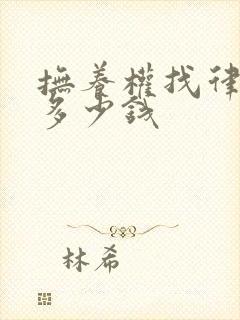 撫養權找律
多少錢
林希